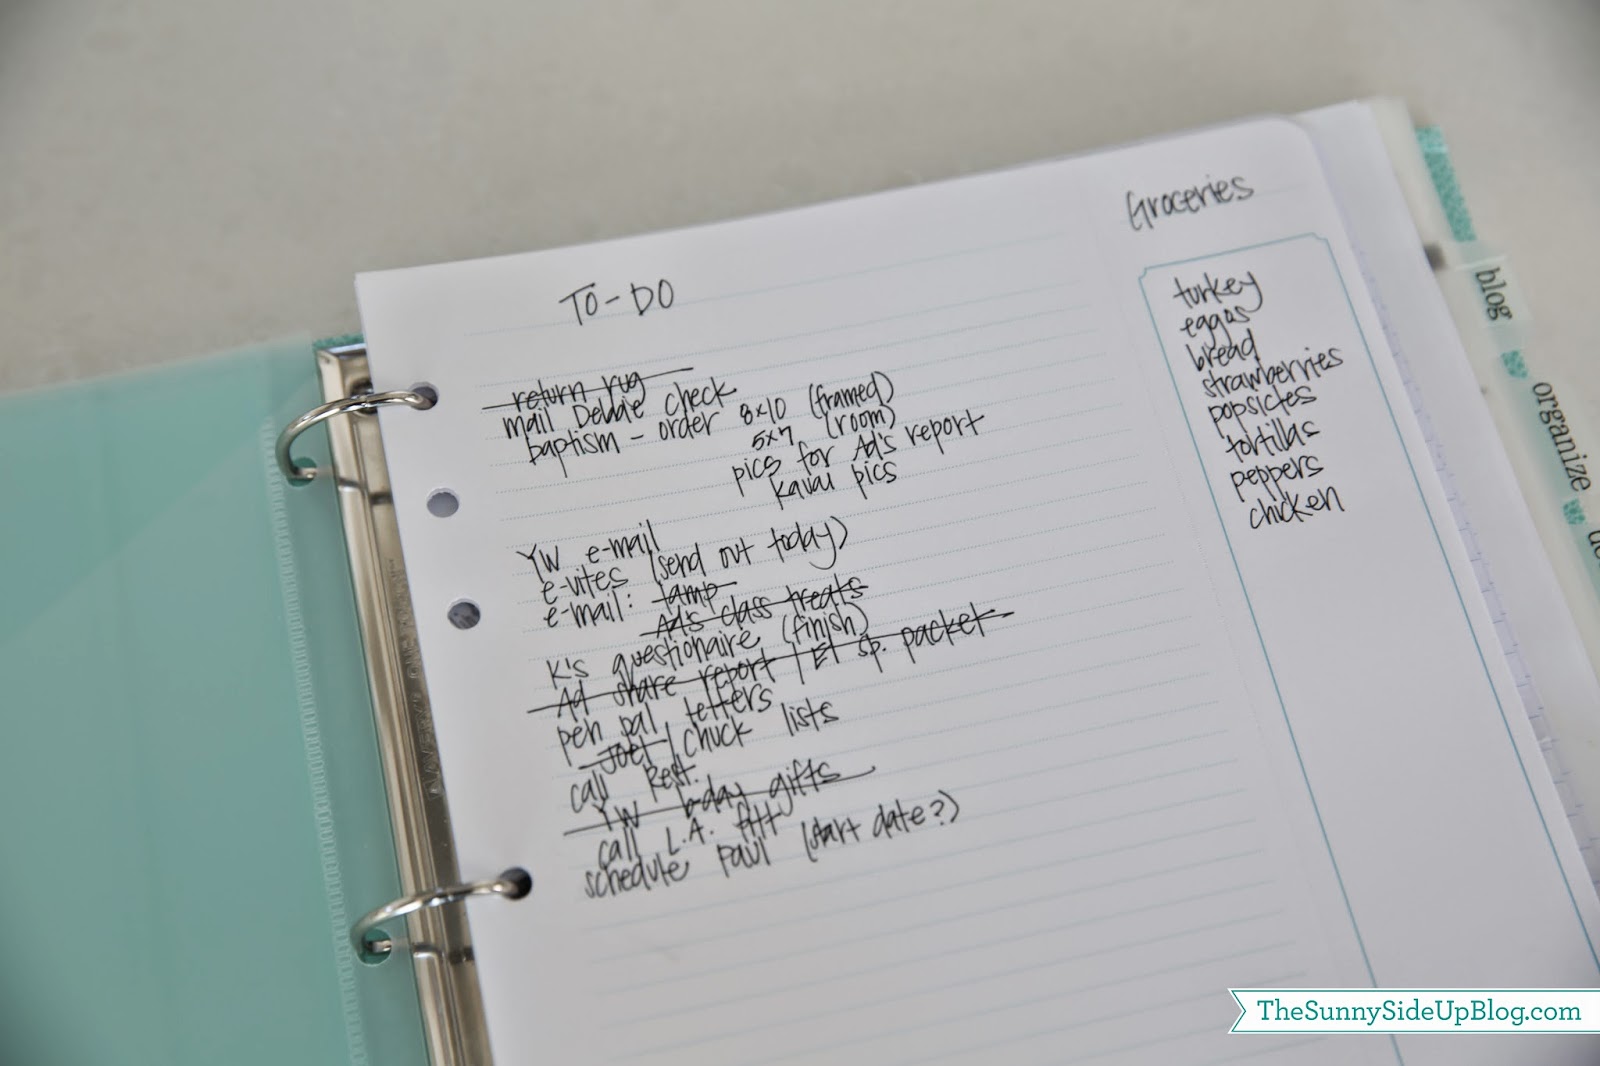 TO-DO
return rug
mail Debbie check
baptism - order 8x10 (framed)
5x7 (room)
pics for Ad's report
kauai pics
YW e-mail
e-vites (send out today)
e-mail: lamp
Ad's class treats
K's questionaire (finish)
Ad share report / El sp. packet
pen pal letters
Joel / Chuck lists
call Rest.
YW b-day gifts
call L.A. fitt
schedule Paul (start date?)
Groceries
turkey
eggos
bread
strawberries
popsicles
tortillas
peppers
chicken
blog
organize
TheSunnySideUpBlog.com